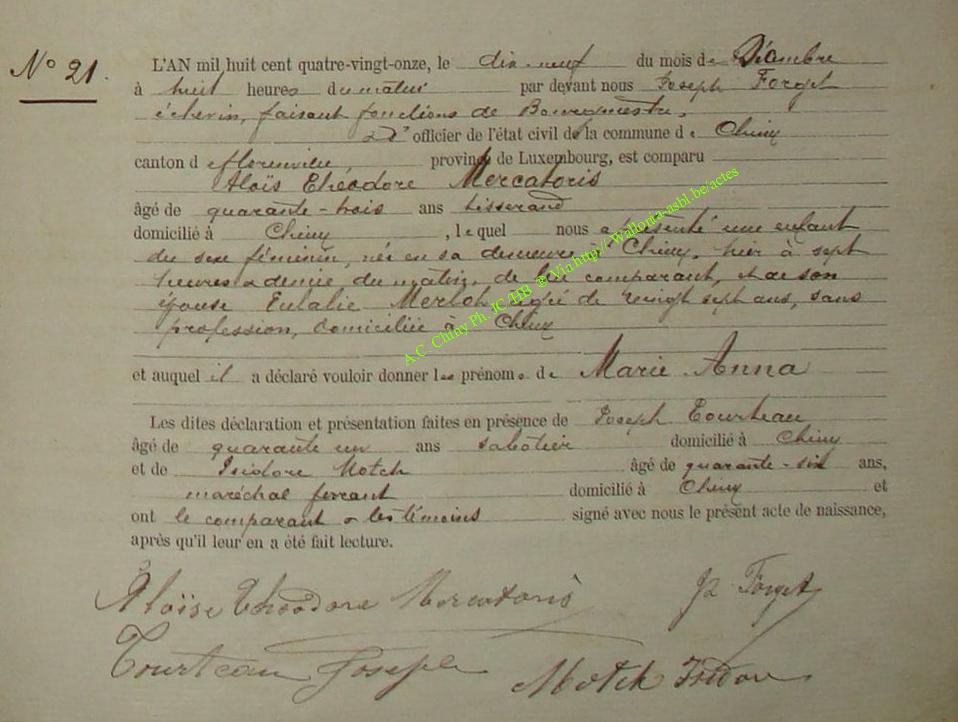 N° 21.
L'AN mil huit cent quatre-vingt-onze, le dix-neuf du mois de Décembre
à huit heures du matin par devant nous Joseph Forget
échevin, faisant fonctions de Bourgmestre,
officier de l'état civil de la commune de Chiny
canton de Florenville, province de Luxembourg, est comparu
Aloïs Théodore Mercatoris
âgé de quarante-trois ans tisserand
domicilié à Chiny, lequel nous a présenté une enfant
du sexe féminin, née en sa demeure à Chiny, hier à sept
heures & demie du matin, de lui comparant, et de son
épouse Eulalie Merloh agée de vingt sept ans, sans
profession, domiciliée à Chiny
et auquel il a déclaré vouloir donner les prénoms de Marie Anna
Les dites déclaration et présentation faites en présence de Joseph Tourteau
âgé de quarante un ans sabotier domicilié à Chiny
et de Isidore Motch âgé de quarante-six ans,
maréchal ferrant domicilié à Chiny et
ont le comparant & les témoins signé avec nous le présent acte de naissance,
après qu'il leur en a été fait lecture.
Aloïse Théodore Mercatoris Forget
Tourteau Joseph Motch Isidore
A.C. Chiny Ph. JC/HB @ Via http://Wallonia-asbl.be/actes